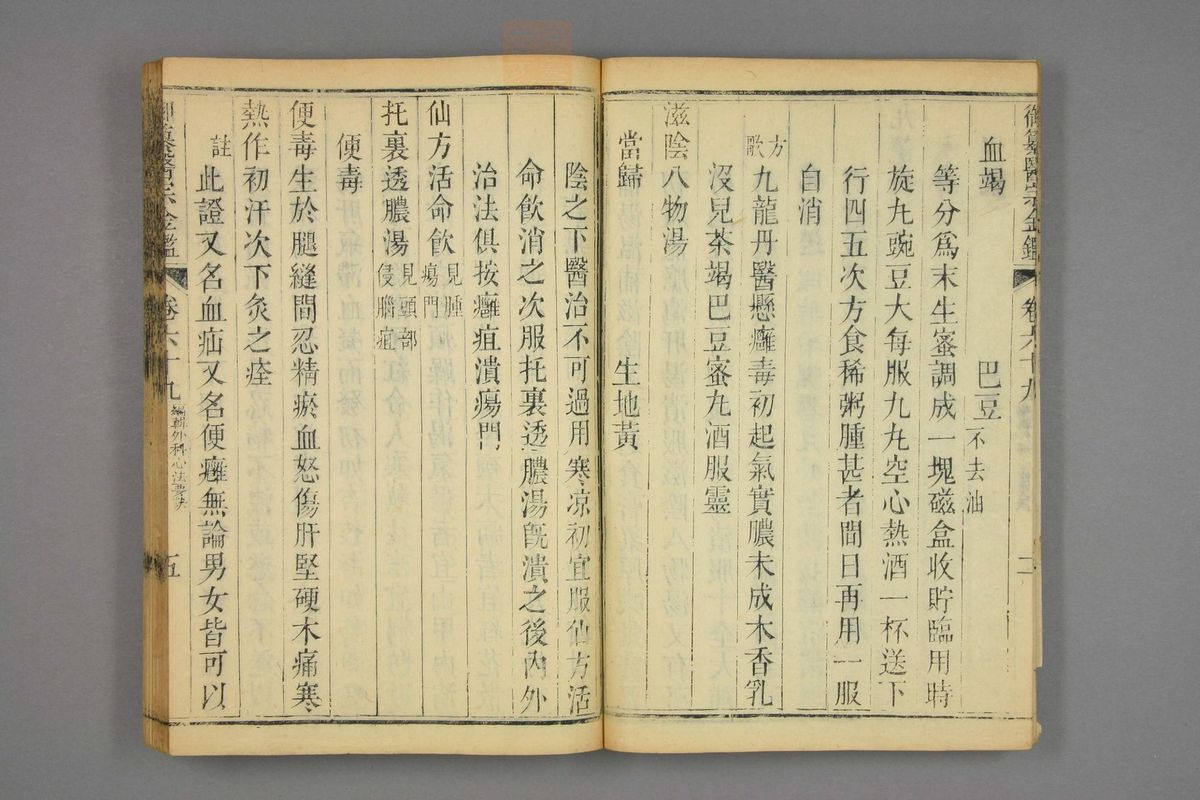 御纂醫宗金鑑 卷六十九
血竭 巴豆不去油
等分爲末生蜜調成一塊磁盒收貯臨用時
旋丸豌豆大每服九丸空心熱酒一杯送下
行四五次方食稀粥腫甚者間日再用一服
自消
方歌 九龍丹醫懸癰毒初起氣實膿未成木香乳
沒兒茶竭巴豆蜜丸酒服靈
滋陰八物湯
當歸 生地黃
陰之下醫治不可過用寒凉初宜服仙方活
命飲消之次服托裏透膿湯旣潰之後內外
治法俱按癰疽潰瘍門
仙方活命飲見腫瘍門
托裏透膿湯見頭部侵腦疽
便毒
便毒生於腿縫間忍精瘀血怒傷肝堅硬木痛寒
熱作初汗次下灸之痊
註 此證又名血疝又名便癰無論男女皆可以
御纂醫宗金鑑 卷六十九 編輯外科心法要訣 五